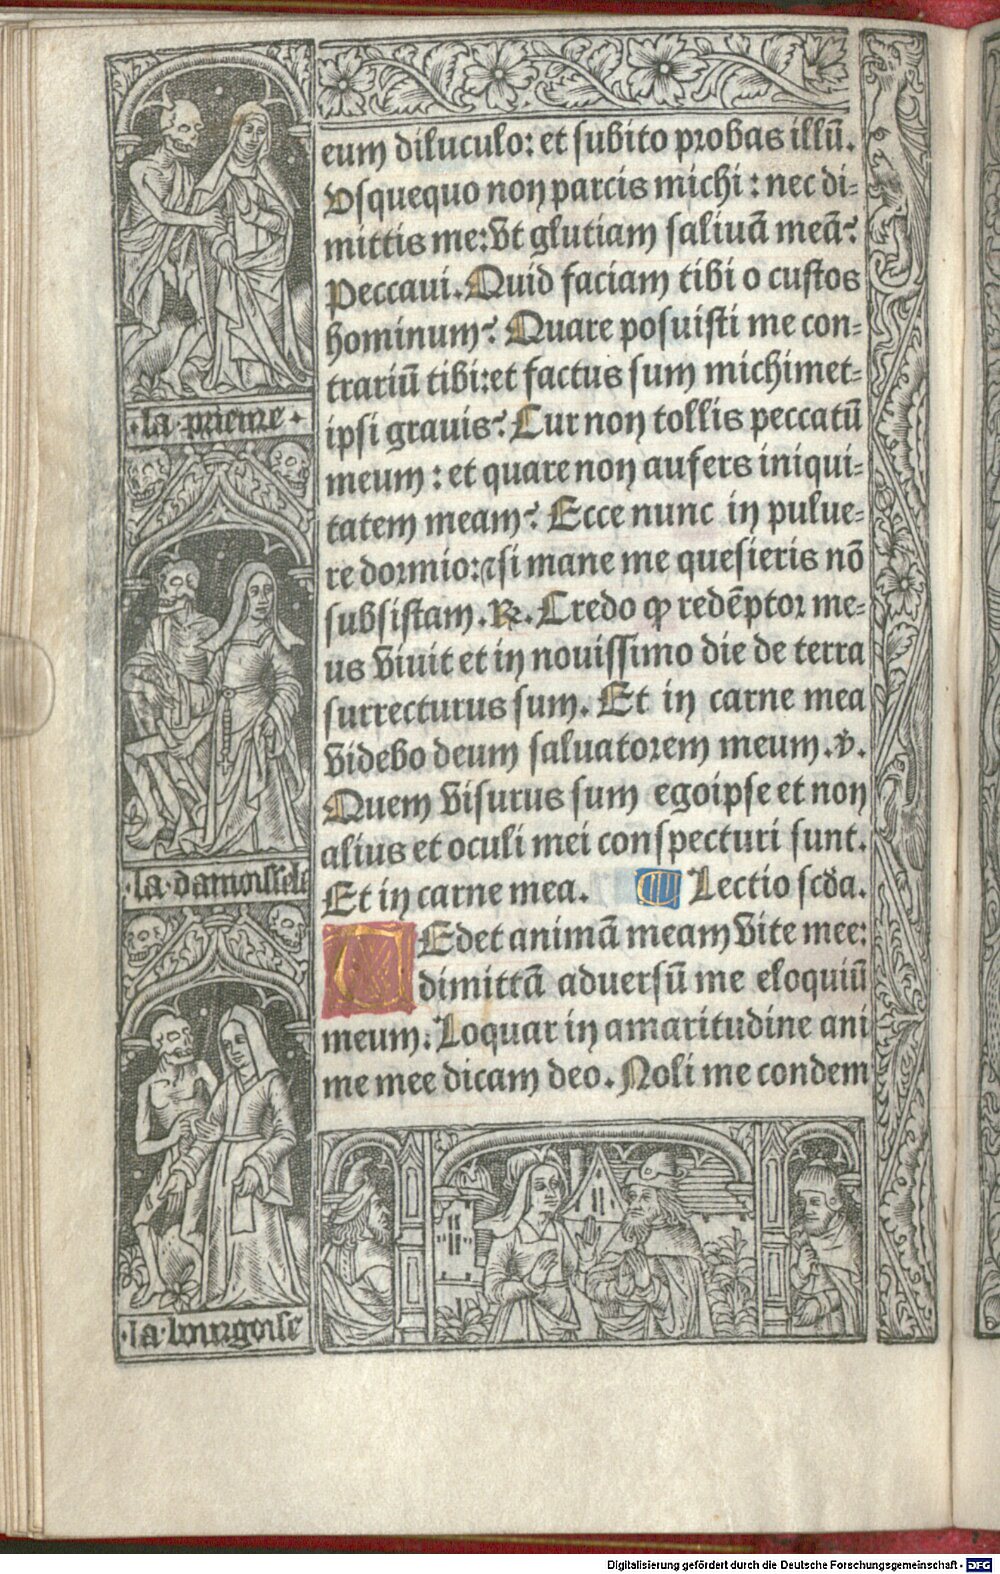 eum diluculo: et subito probas illū.
Vsquequo non parcis michi: nec di-
mittis me: vt glutiam saliuā meā?
Peccaui. Quid faciam tibi o custos
hominum? Quare posuisti me con-
trariū tibi: et factus sum michimet-
ipsi grauis? Cur non tollis peccatū
meum: et quare non aufers iniqui-
tatem meam? Ecce nunc in pulue-
re dormio: ⁊ si mane me quesieris nō
subsistam. ℟. Credo ꝙ redēptor me-
us viuit et in nouissimo die de terra
surrecturus sum. Et in carne mea
videbo deum saluatorem meum. ℣.
Quem visurus sum egoipse et non
alius et oculi mei conspecturi sunt.
Et in carne mea. Lectio scđa.
TEdet animā meam vite mee:
dimittā aduersū me eloquiū
meum. Loquar in amaritudine ani
me mee dicam deo. Noli me condem
·la·prieure·
·la·damoissele
·la·bourgoise
Digitalisierung gefördert durch die Deutsche Forschungsgemeinschaft - DFG